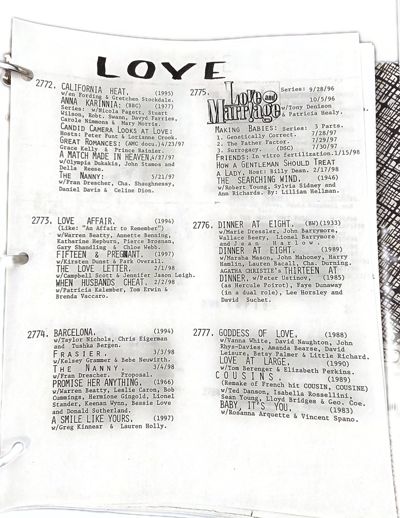 LOVE
2772. CALIFORNIA HEAT. (1995)
w/en Fording & Gretchen Stockdale.
ANNA KARINNIA: (BBC) (1977)
Series: w/Nicola Pagett, Stuart
Wilson, Robt. Swann, Davyd Farries,
Carole Nimmons & Mary Morris.
CANDID CAMERA LOOKS AT LOVE:
Hosts: Peter Funt & Lorianne Crook.
GREAT ROMANCES: (AMC docu.) 4/23/97
Grace Kelly & Prince Rainier.
A MATCH MADE IN HEAVEN. 4/27/97
w/Olympia Dukakis, John Stamos and
Della Reese.
THE NANNY: 5/21/97
w/Fran Drescher, Cha. Shaughnessy,
Daniel Davis & Celine Dion.
2773. LOVE AFFAIR. (1994)
(Like: "An Affair to Remember")
w/Warren Beatty, Annette Benning,
Katharine Hepburn, Pierce Brosnan,
Gary Shandling & Chloe Webb.
FIFTEEN & PREGNANT. (1997)
w/Kirsten Dunst & Park Overall.
THE LOVE LETTER. 2/1/98
w/Campbell Scott & Jennifer Jason Leigh.
WHEN HUSBANDS CHEAT. 2/2/98
w/Patricia Kalember, Tom Erwin &
Brenda Vaccaro.
2774. BARCELONA. (1994)
w/Taylor Nichols, Chris Eigerman
and Tushka Bergen.
FRASIER. 3/3/98
w/Kelsey Grammer & Bebe Neuwirth.
THE NANNY. 3/4/98
w/Fran Dreacher. Proposal.
PROMISE HER ANYTHING. (1966)
w/Warren Beatty, Leslie Caron, Bob
Cummings, Hermione Gingold, Lionel
Stander, Keenan Wynn, Bassie Love
and Donald Sutherland.
A SMILE LIKE YOURS. (1997)
w/Greg Kinnear & Lauren Holly.
2775. Love and Marriage Series: 9/28/96
10/5/96
w/Tony Denison
& Patricia Healy.
MAKING BABIES: Series: 3 Parts.
1. Genetically Correct. 7/28/97
2. The Father Factor. 7/29/97
3. Surrogacy. (DSC) 7/30/97
FRIENDS: In vitro fertilization. 1/15/98
HOW A GENTLEMAN SHOULD TREAT
A LADY, Host: Billy Dean. 2/17/98
THE SEARCHING WIND. (1946)
w/Robert Young, Sylvia Sidney and
Ann Richards. By: Lillian Hellman.
2776. DINNER AT EIGHT. (BW) (1933)
w/Marie Dressler, John Barrymore,
Wallace Berry, Lionel Barrymore
and Jean Harlow.
DINNER AT EIGHT. (1989)
w/Marsha Mason, John Mahoney, Harry
Hamlin, Lauren Bacall, Cha. Durning.
AGATHA CHRISTIE'S THIRTEEN AT
DINNER, w/Peter Ustinov, (1985)
(as Hercule Poirot), Faye Dunaway
(in a dual role), Lee Horsley and
David Suchet.
2777. GODDESS OF LOVE. (1988)
w/Vanna White, David Naughton, John
Rhys-Davies, Amanda Bearse, David
Leisure, Betsy Palmer & Little Richard.
LOVE AT LARGE. (1990)
w/Tom Berenger & Elizabeth Perkins.
COUSINS. (1989)
(Remake of French hit COUSIN, COUSINE)
w/Ted Danson, Isabella Rossellini,
Sean Young, Lloyd Bridges & Geo. Coe.
BABY, IT'S YOU. (1983)
w/Rosanna Arquette & Vincent Spano.